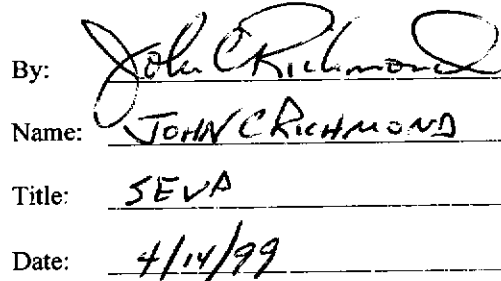 By: John C Richmond
Name: JOHN C RICHMOND
Title: SEVP
Date: 4/14/99